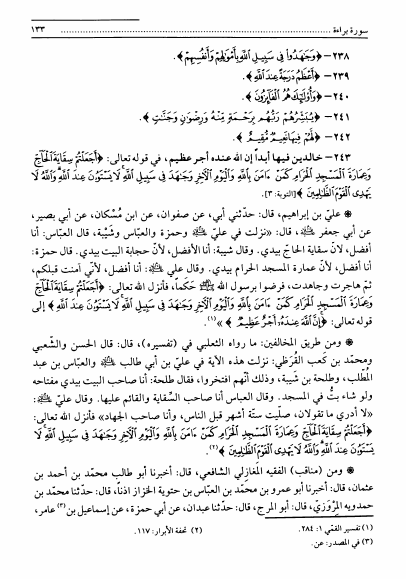 سورة براءة ........ ١٣٣
٢٣٨- ﴿وَجَٰهَدُوا۟ فِى سَبِيلِ ٱللَّهِ بِأَمْوَٰلِهِمْ وَأَنفُسِهِمْ﴾.
٢٣٩- ﴿أَعْظَمُ دَرَجَةً عِندَ ٱللَّهِ﴾.
٢٤٠- ﴿وَأُو۟لَٰٓئِكَ هُمُ ٱلْفَآئِزُونَ﴾.
٢٤١- ﴿يُبَشِّرُهُمْ رَبُّهُم بِرَحْمَةٍ مِّنْهُ وَرِضْوَٰنٍ وَجَنَّٰتٍ﴾.
٢٤٢- ﴿لَّهُمْ فِيهَا نَعِيمٌ مُّقِيمٌ﴾.
٢٤٣- خالدين فيها أبداً إن الله عنده أجر عظيم، في قوله تعالى: ﴿أَجَعَلْتُمْ سِقَايَةَ ٱلْحَآجِّ
وَعِمَارَةَ ٱلْمَسْجِدِ ٱلْحَرَامِ كَمَنْ ءَامَنَ بِٱللَّهِ وَٱلْيَوْمِ ٱلْءَاخِرِ وَجَٰهَدَ فِى سَبِيلِ ٱللَّهِ لَا يَسْتَوُۥنَ عِندَ ٱللَّهِ وَٱللَّهُ لَا
يَهْدِى ٱلْقَوْمَ ٱلظَّٰلِمِينَ﴾ [التوبة: ٣].
❋ عليّ بن إبراهيم، قال: حدّثني أبي، عن صفوان، عن ابن مُسْكان، عن أبي بصير،
عن أبي جعفر، قال: «نزلت في عليّ وحمزة والعباس وشَيْبة، قال العباس: أنا
أفضل، لأنّ سقاية الحاجّ بيدي. وقال شيبة: أنا الأفضل، لأنّ حجابة البيت بيدي. قال حمزة:
أنا أفضل، لأنّ عمارة المسجد الحرام بيدي. وقال علي: أنا أفضل، لأنّي آمنت قبلكم،
ثمّ هاجرت وجاهدت، فرضوا برسول الله حَكَماً، فأنزل الله تعالى: ﴿أَجَعَلْتُمْ سِقَايَةَ ٱلْحَآجِّ
وَعِمَارَةَ ٱلْمَسْجِدِ ٱلْحَرَامِ كَمَنْ ءَامَنَ بِٱللَّهِ وَٱلْيَوْمِ ٱلْءَاخِرِ وَجَٰهَدَ فِى سَبِيلِ ٱللَّهِ لَا يَسْتَوُۥنَ عِندَ ٱللَّهِ﴾ إلى
قوله تعالى: ﴿إِنَّ ٱللَّهَ عِندَهُۥٓ أَجْرٌ عَظِيمٌ﴾»(١).
❋ ومن طريق المخالفين: ما رواه الثعلبي في (تفسيره)، قال: قال الحسن والشَّعبي
ومحمّد بن كَعب القُرَظي: نزلت هذه الآية في عليّ بن أبي طالب والعبّاس بن عبد
المُطّلب، وطلحة بن شَيبة، وذلك أنّهم افتخروا، فقال طلحة: أنا صاحب البيت بيدي مفتاحه
ولو شاء بتُّ في المسجد. وقال العباس أنا صاحب السِّقاية والقائم عليها. وقال عليّ:
«لا أدري ما تقولان، صلَّيت ستّة أشهر قبل الناس، وأنا صاحب الجهاد» فأنزل الله تعالى:
﴿أَجَعَلْتُمْ سِقَايَةَ ٱلْحَآجِّ وَعِمَارَةَ ٱلْمَسْجِدِ ٱلْحَرَامِ كَمَنْ ءَامَنَ بِٱللَّهِ وَٱلْيَوْمِ ٱلْءَاخِرِ وَجَٰهَدَ فِى سَبِيلِ ٱللَّهِ لَا
يَسْتَوُۥنَ عِندَ ٱللَّهِ وَٱللَّهُ لَا يَهْدِى ٱلْقَوْمَ ٱلظَّٰلِمِينَ﴾(٢).
❋ ومن (مناقب) الفقيه المَغازِلي الشافعي، قال: أخبرنا أبو طالب محمّد بن أحمد بن
عثمان، قال: أخبرنا أبو عمرو بن محمد بن العباس بن حتوية الخزاز اذناً، قال: حدّثنا محمّد بن
حمدويه المَرْوَزيّ، قال: أبو المرج، قال: حدّثنا عبدان، عن أبي حمزة، عن إسماعيل بن(٣) عامر،
(١) تفسير القمّي ١: ٢٨٤.
(٢) تحفة الأبرار: ١١٧.
(٣) في المصدر: عن.